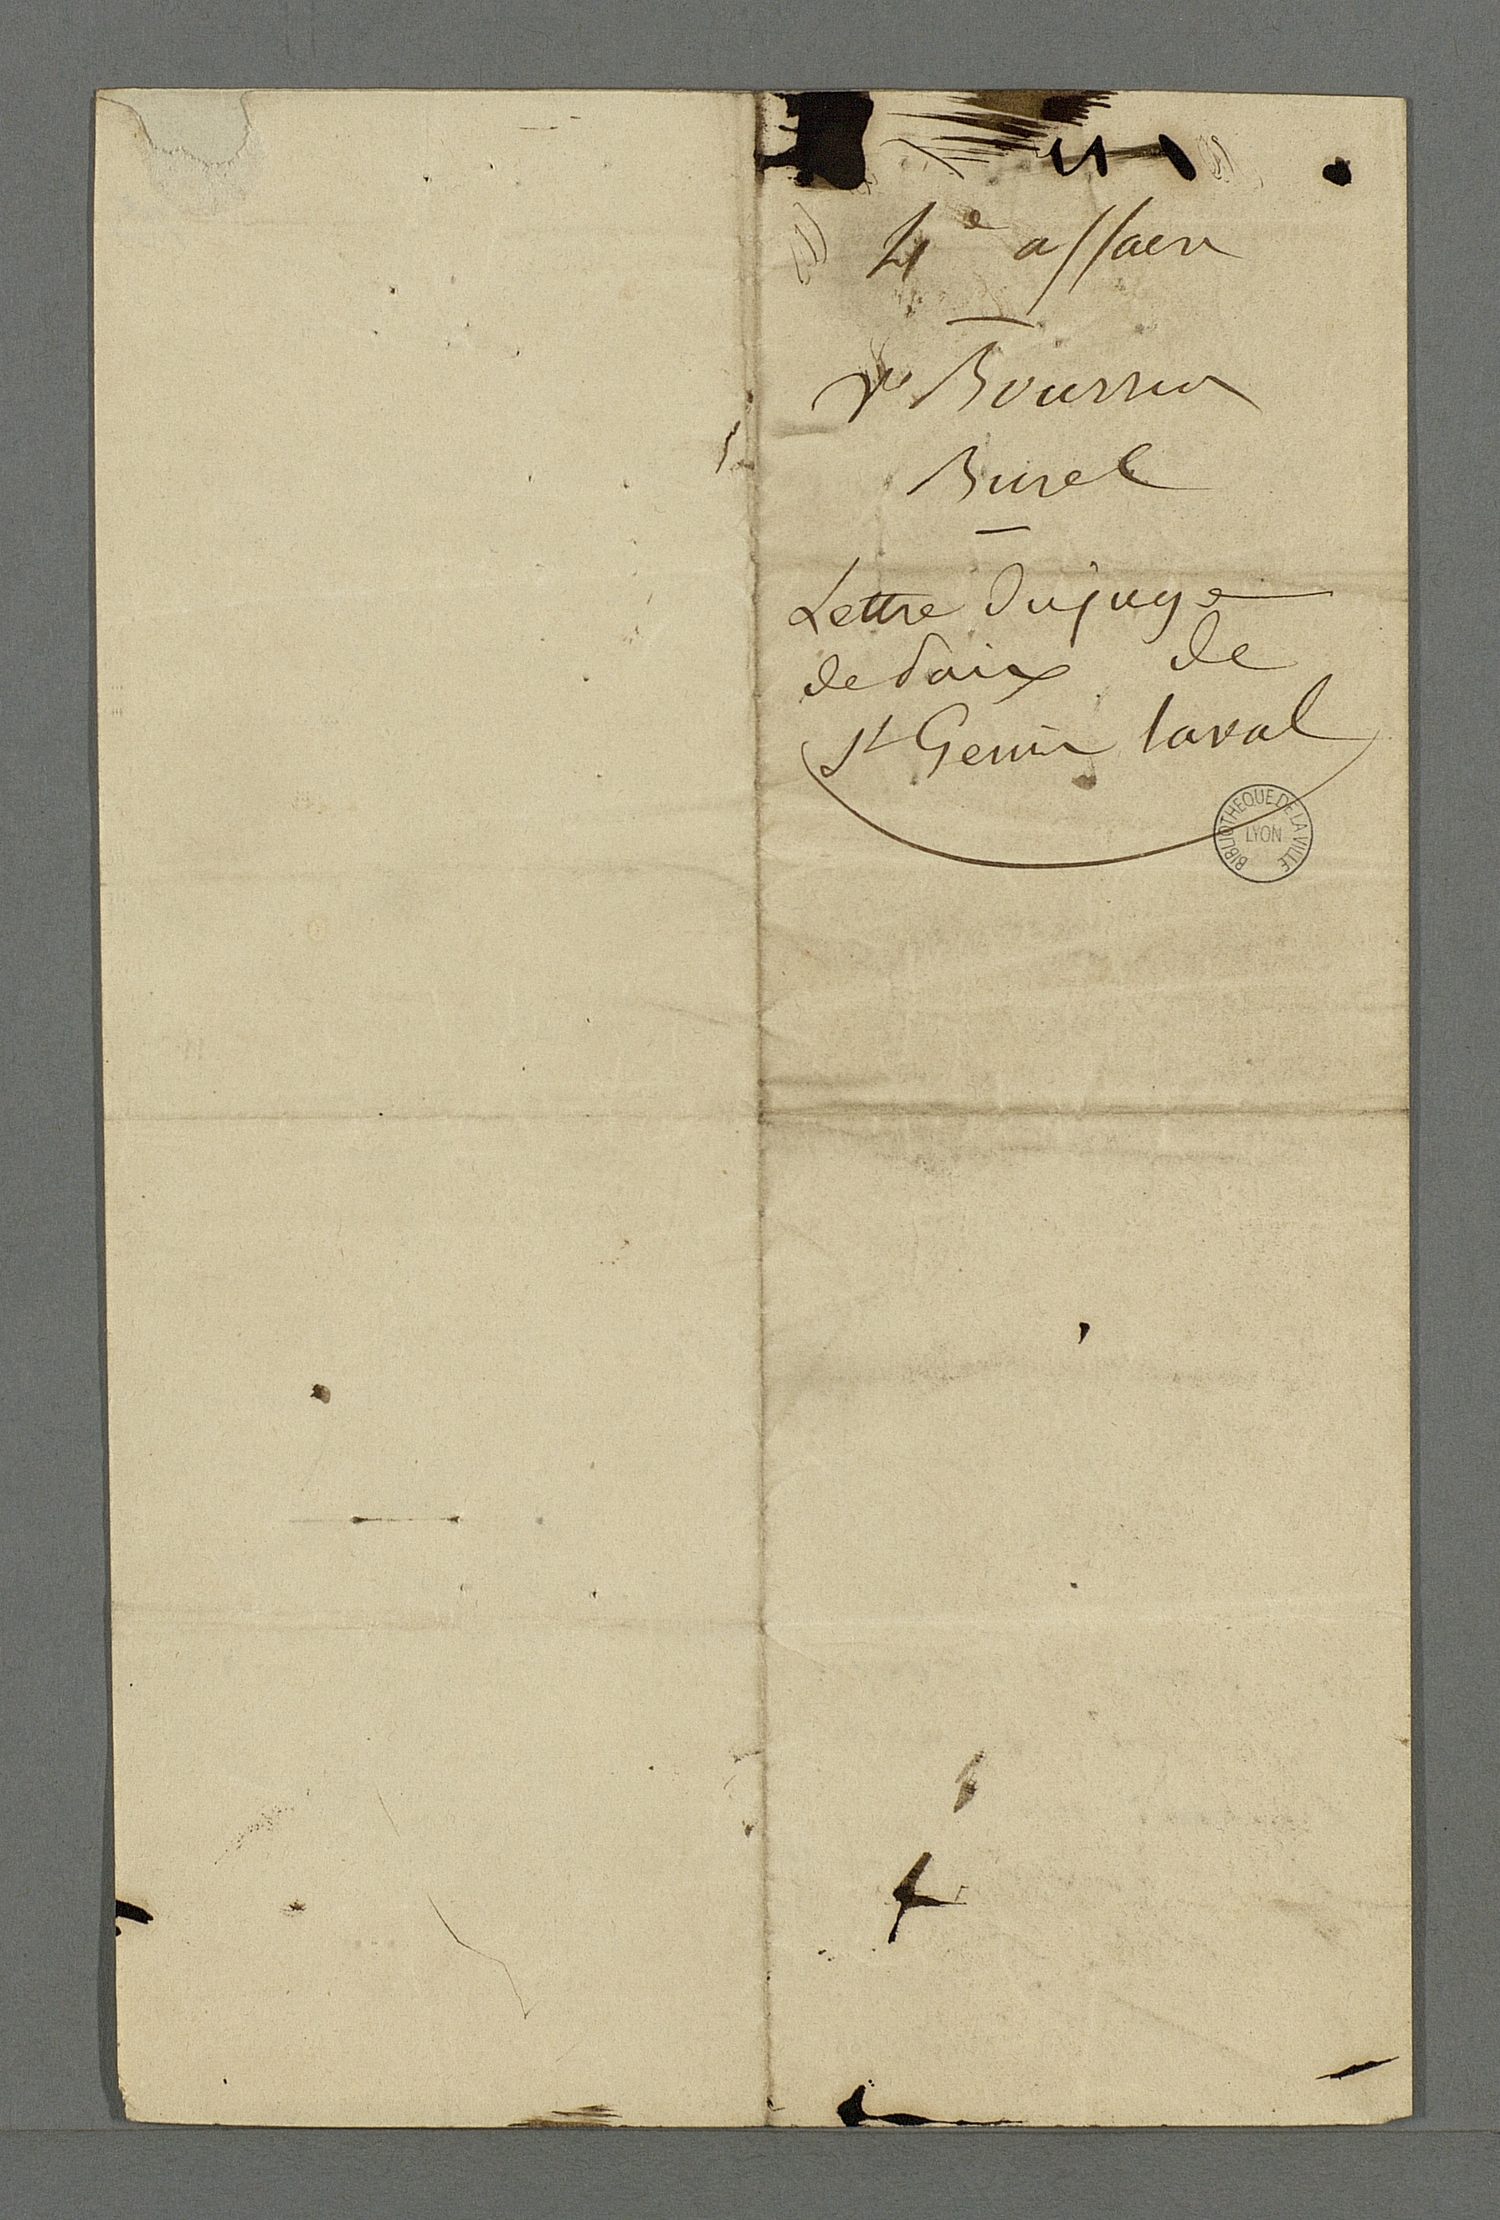 4e affaire
Ve Boursier
Burel
Lettre du juge
de paix de
St Genis laval
BIBLIOTHEQUE DE LA VILLE
LYON